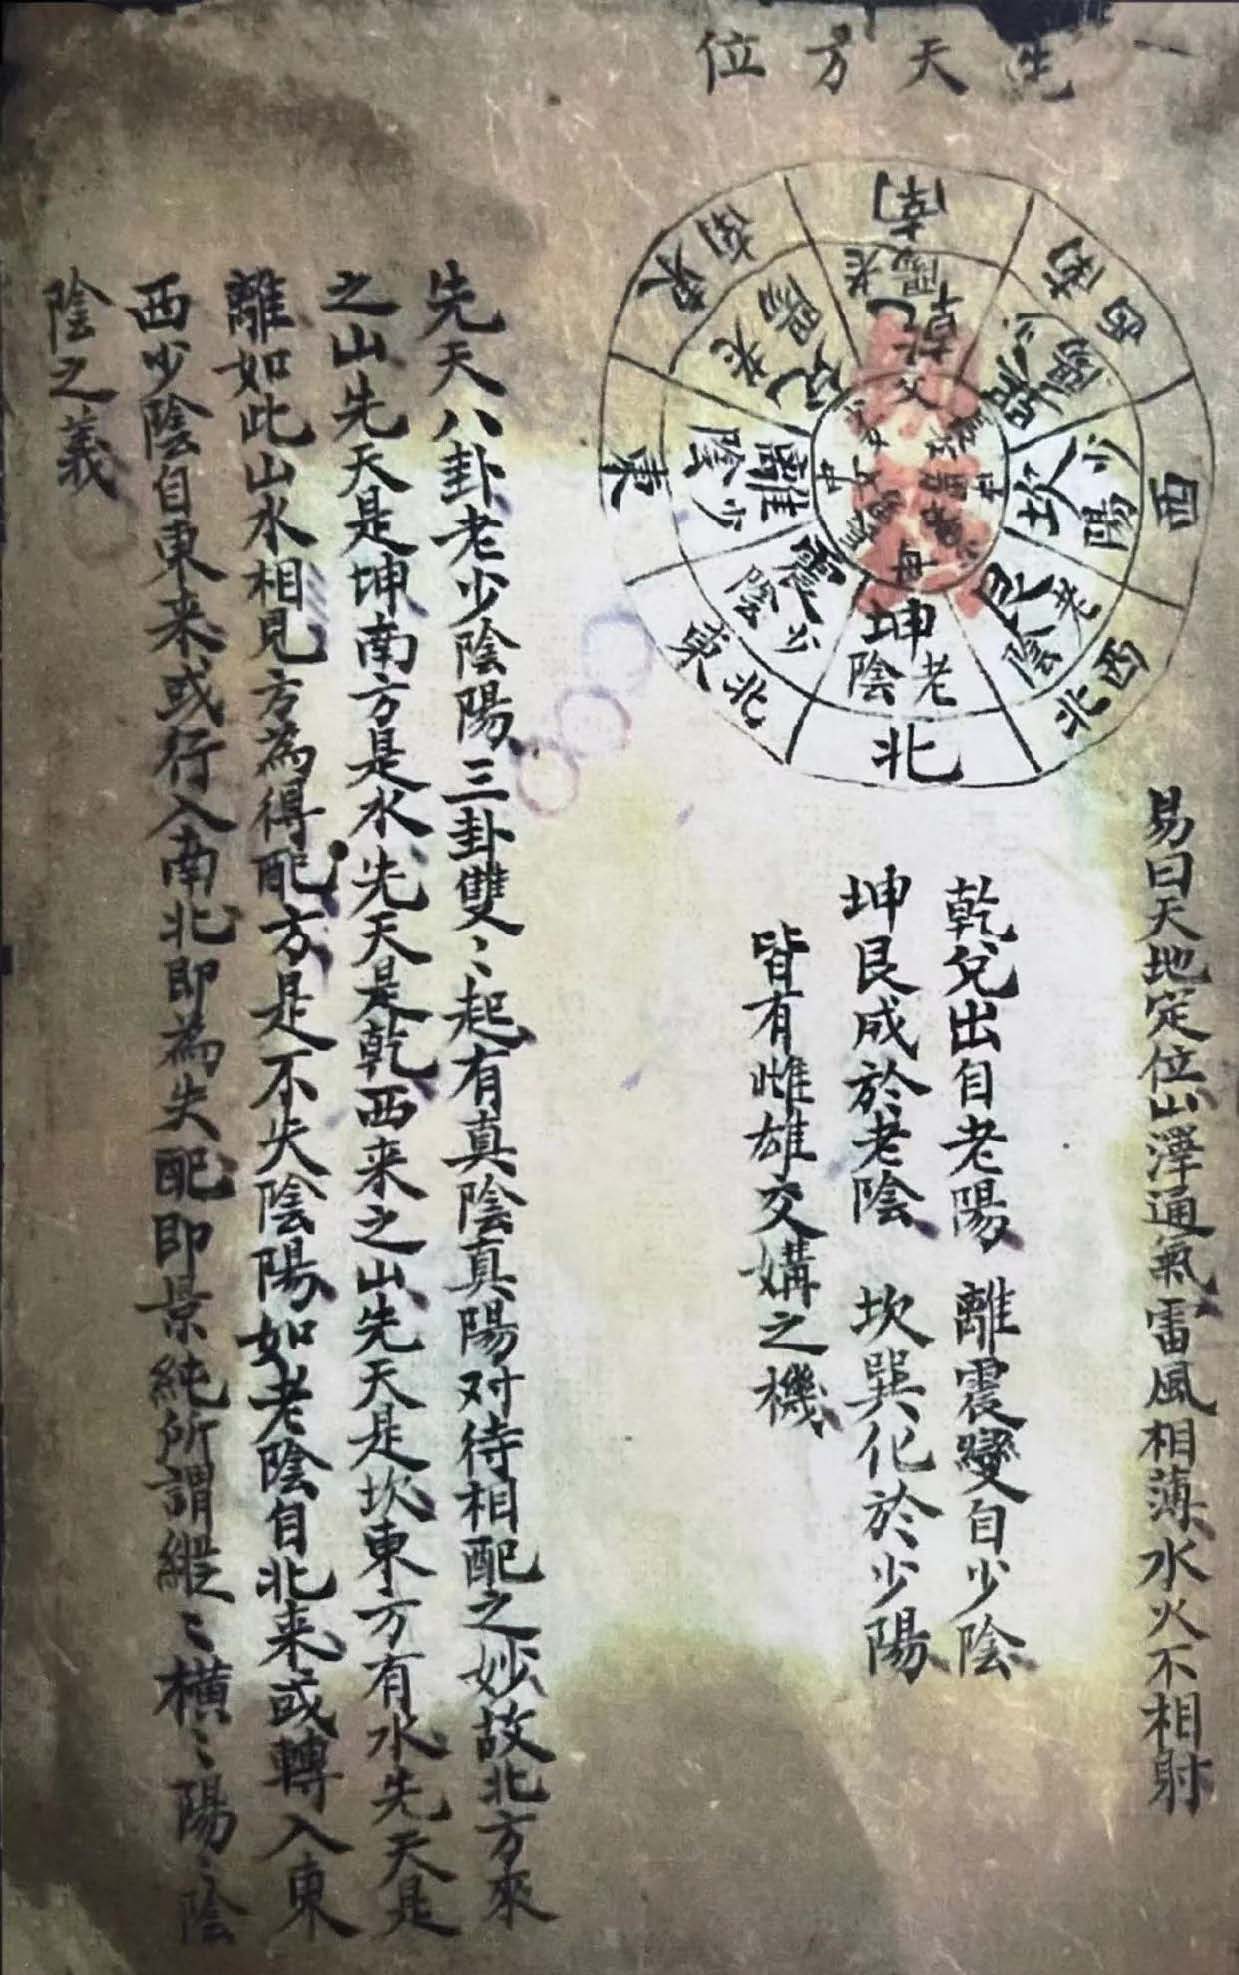 一先天方位
南
老陽
乾
西南
少陽
巽
西
少陽
坎
西北
老陰
艮
北
老陰
坤
東北
少陰
震
東
少陰
離
東南
老陽
兌
父
母
中
易曰天地定位山澤通氣雷風相薄水火不相射
乾兌出自老陽 離震變自少陰
坤艮成於老陰 坎巽化於少陽
皆有雌雄交媾之機
先天八卦老少陰陽三卦雙〻起有真陰真陽对待相配之妙故北方來
之山先天是坤南方是水先天是乾西来之山先天是坎東方有水先天是
離如此山水相見方為得配方是不失陰陽如老陰自北来或轉入東
西少陰自東来或行入南北即為失配即景純所謂縱〻橫〻陽〻陰
陰之義